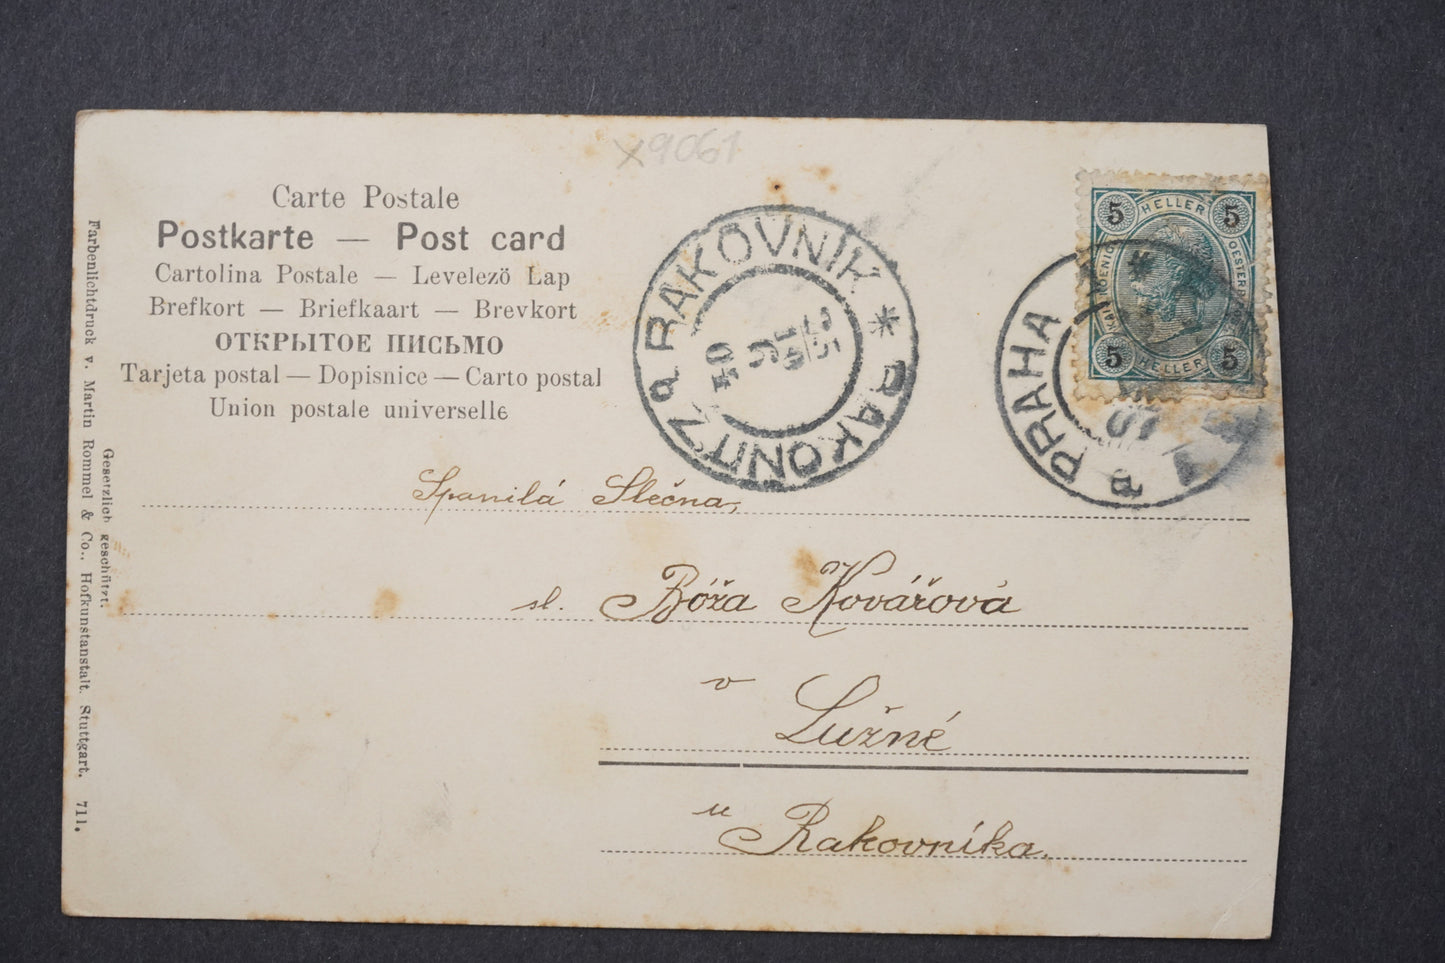 x9061
Carte Postale
Postkarte — Post card
Cartolina Postale — Levelezö Lap
Brefkort — Briefkaart — Brevkort
ОТКРЫТОЕ ПИСЬМО
Tarjeta postal — Dopisnice — Carto postal
Union postale universelle
RAKOVNÍK * RAKONITZ a
5 HELLER 5
5 HELLER 5
PRAHA
Spanilá Slečna,
sl. Bóža Kovářová
v Lužné
u Rakovníka.
Gesetzlich geschützt.
Farbenlichtdruck v. Martin Rommel & Co., Hofkunstanstalt. Stuttgart. 711.